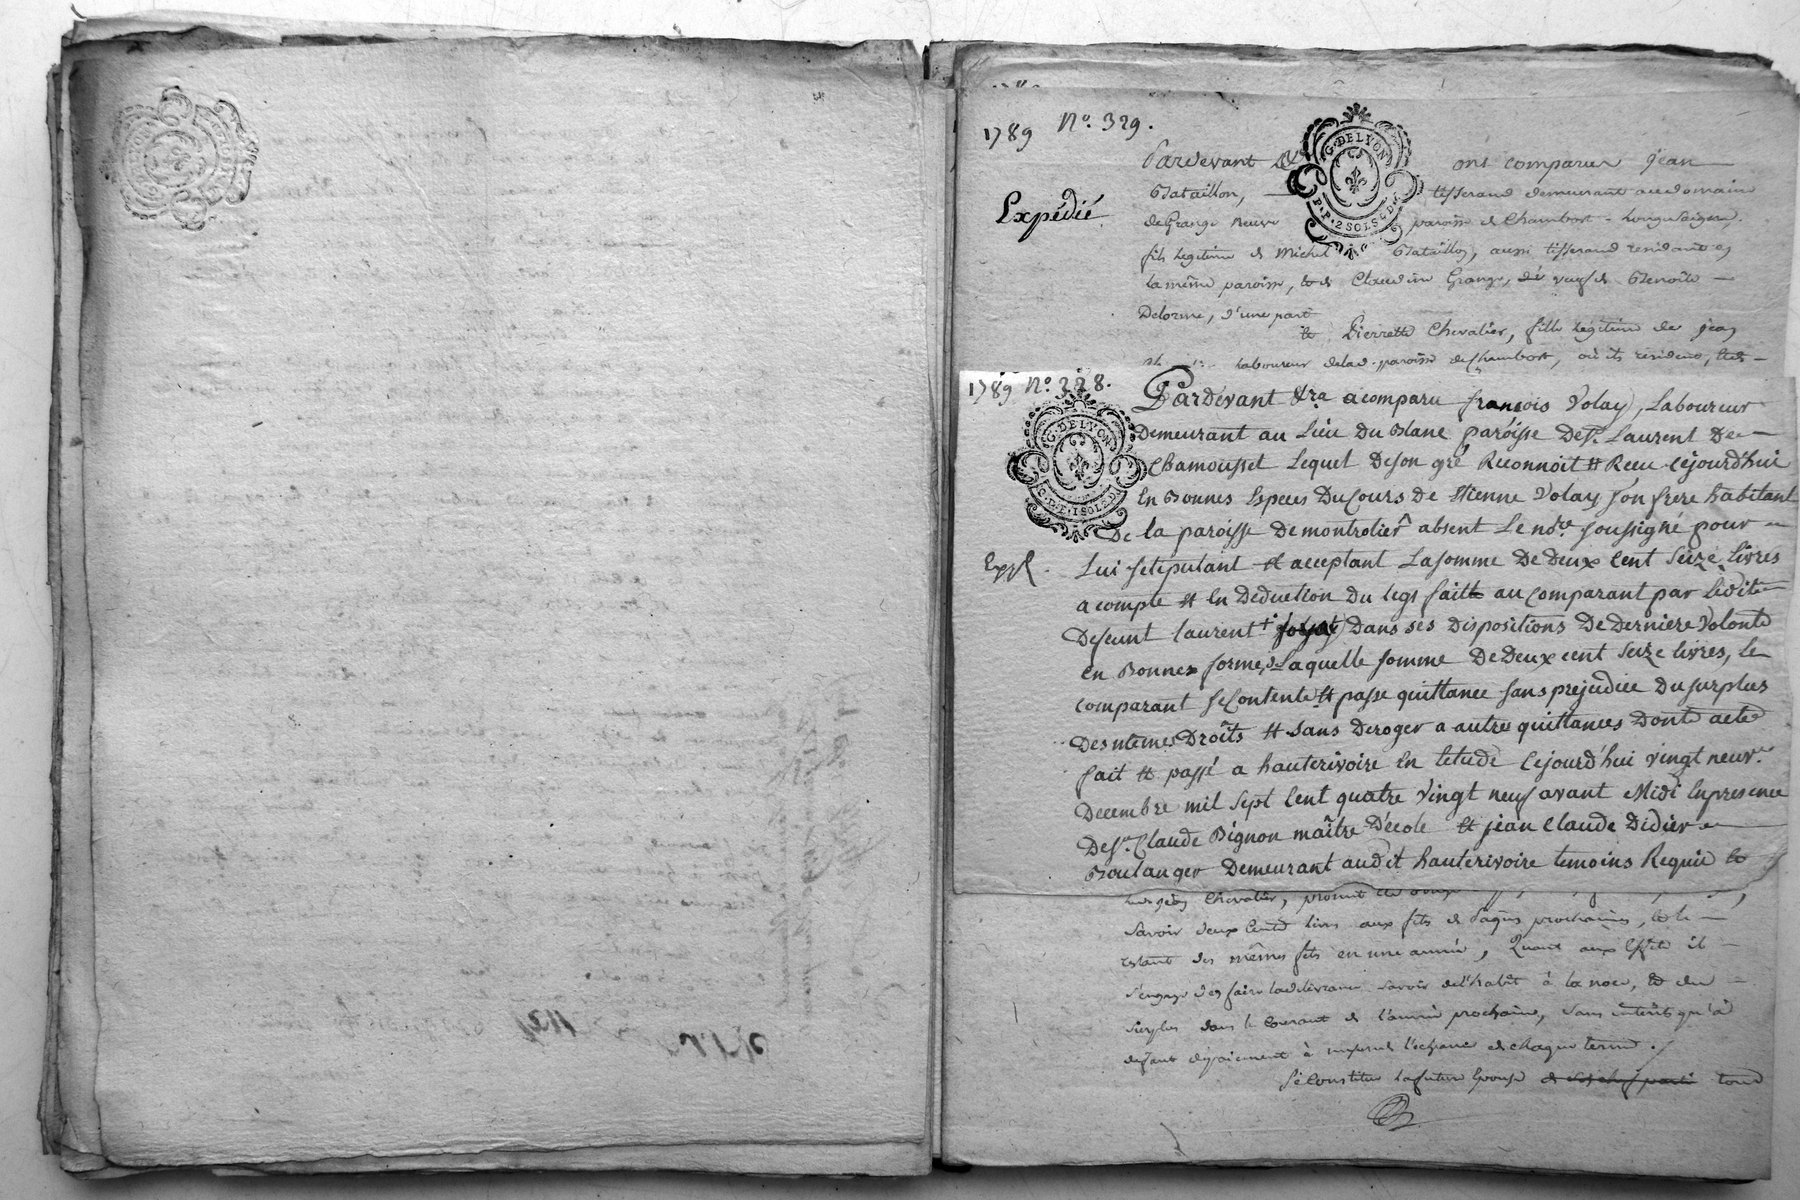 1789 No. 329.
G. DE LYON
P. P. 2 SOLS 6 D.
Expédié
Pardevant ont comparu jean
Bataillon, tisserand demeurant au domaine
de Grange neuve paroisse de Chambost-Longesaigne,
fils legitime de Michel Bataillon, aussi tisserand residant en
la même paroisse, et de Claudine Grange, veuf de Benoîte
Delorme, d'une part
et Pierrette Chevalier, fille legitime de jean
laboureur de lad. paroisse de Chambost, où ils resident,
1789 No. 328.
G. DE LYON
Expé.
Pardevant Nre a comparu françois Volay, Laboureur
Demeurant au Lieu du Blanc paroisse De St. Laurent De
Chamousset Lequel De son gré Reconnoit et Recu cejourd'hui
En Bonnes Especes Du Cours De Etienne Volay son frere habitant
De la paroisse De montrotier absent Le nore. soussigné pour
Lui stipulant et acceptant La somme De Deux Cent Seize livres
a compte et En Deduction Du legs fait au Comparant par Ledit
Defeunt Laurent Dans ses Dispositions De Derniere Volonté
en Bonnes formes, Laquelle somme De Deux cent Seize livres, le
comparant se Contente et passe quittance sans prejudice Du surplus
Des mêmes Droîts et sans Deroger a autre quittances Dont acte
fait et passé a hauterivoire En letude Cejourd'hui vingt neuv.e
Decembre mil sept Cent quatre Vingt neuf avant Midi En presence
De Sr. Claude Bignon maître D'école et jean Claude Didier
Boulanger Demeurant audit hauterivoire temoins Requis et
Chevalier, promet
savoir deux Cents livres aux fêtes de Pâques prochaines, et le
restant des mêmes fêtes en une année, Quant aux Effets il
s'engage d'en faire la delivrance savoir de l'habit à la noce, et du
surplus dans le Courant de l'année prochaine, sans interêts qu'à
defaut de paiement à mesure l'echeance de chaque terme.
Se Constitue la future Epouse tous